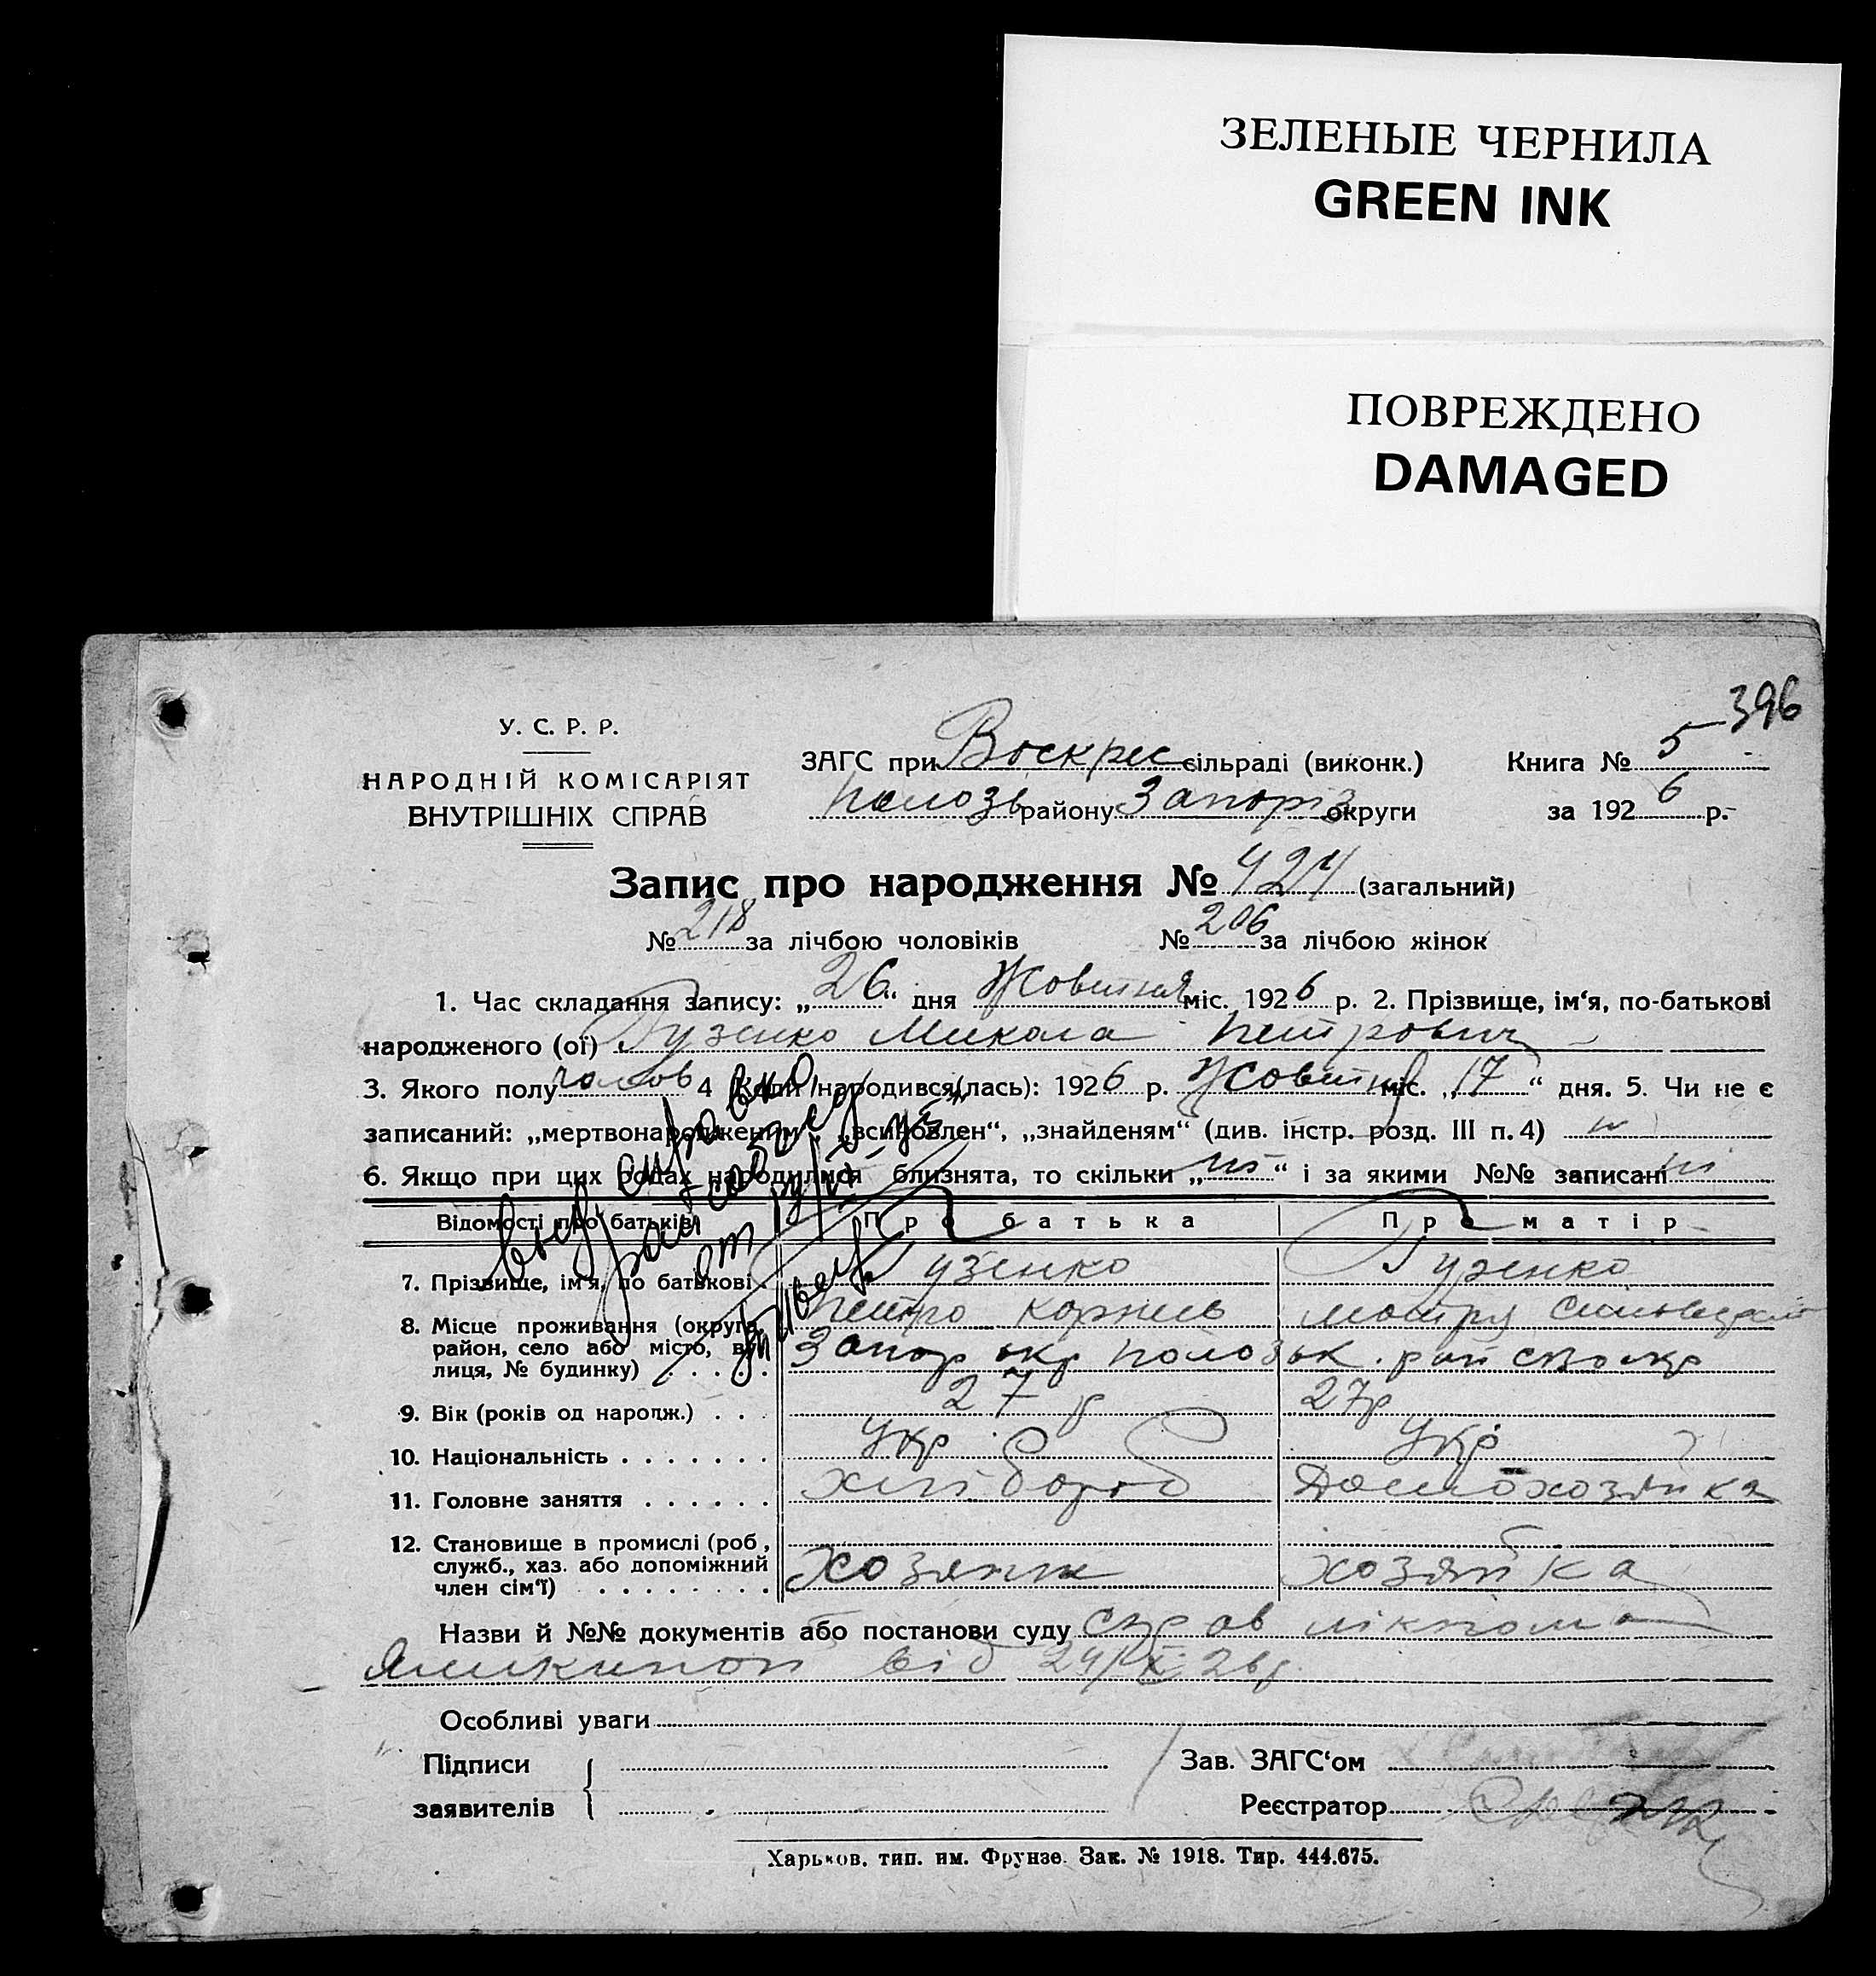 ЗЕЛЕНЫЕ ЧЕРНИЛА
GREEN INK
ПОВРЕЖДЕНО
DAMAGED
396
У. С. Р. Р.
НАРОДНІЙ КОМІСАРІЯТ
ВНУТРІШНІХ СПРАВ
ЗАГС при Воскрес сільраді (виконк.)
Полозь району Запоріз округи
Книга № 5
за 1926 р.
Запис про народження № 424 (загальний)
№ 218 за лічбою чоловіків № 206 за лічбою жінок
1. Час складання запису: „26“ дня Жовтня міс. 1926 р. 2. Прізвище, ім‘я, по-батькові
народженого (ої) Гузенко Микола Петрович
3. Якого полу чолов 4 Коли народився(лась): 1926 р. Жовтня міс. „17“ дня. 5. Чи не є
записаний: „мертвонародженим“, „всиновлен“, „знайденям“ (див. інстр. розд. III п. 4)
6. Якщо при цих родах народилися близнята, то скільки „ні“ і за якими №№ записані ні
Відомості про батьків Про батька Про матір
7. Прізвище, ім‘я, по батькові Гузенко Гузенко
Петро Корнів Мотря
8. Місце проживання (округа, район, село або місто, вулиця, № будинку) Запор окр Полозьк. рай
9. Вік (років од народж.) 27 р 27р
10. Національність Укр Укр
11. Головне заняття хлібороб Домохозяйка
12. Становище в промислі (роб, служб., хаз. або допоміжний член сім‘ї) хозяин хозяйка
Назви й №№ документів або постанови суду справ
від 24/X 26р.
Особливі уваги
Підписи
заявителів
Зав. ЗАГС‘ом
Реєстратор
Харьков, тип. им. Фрунзе. Зак. № 1918. Тир. 444.675.